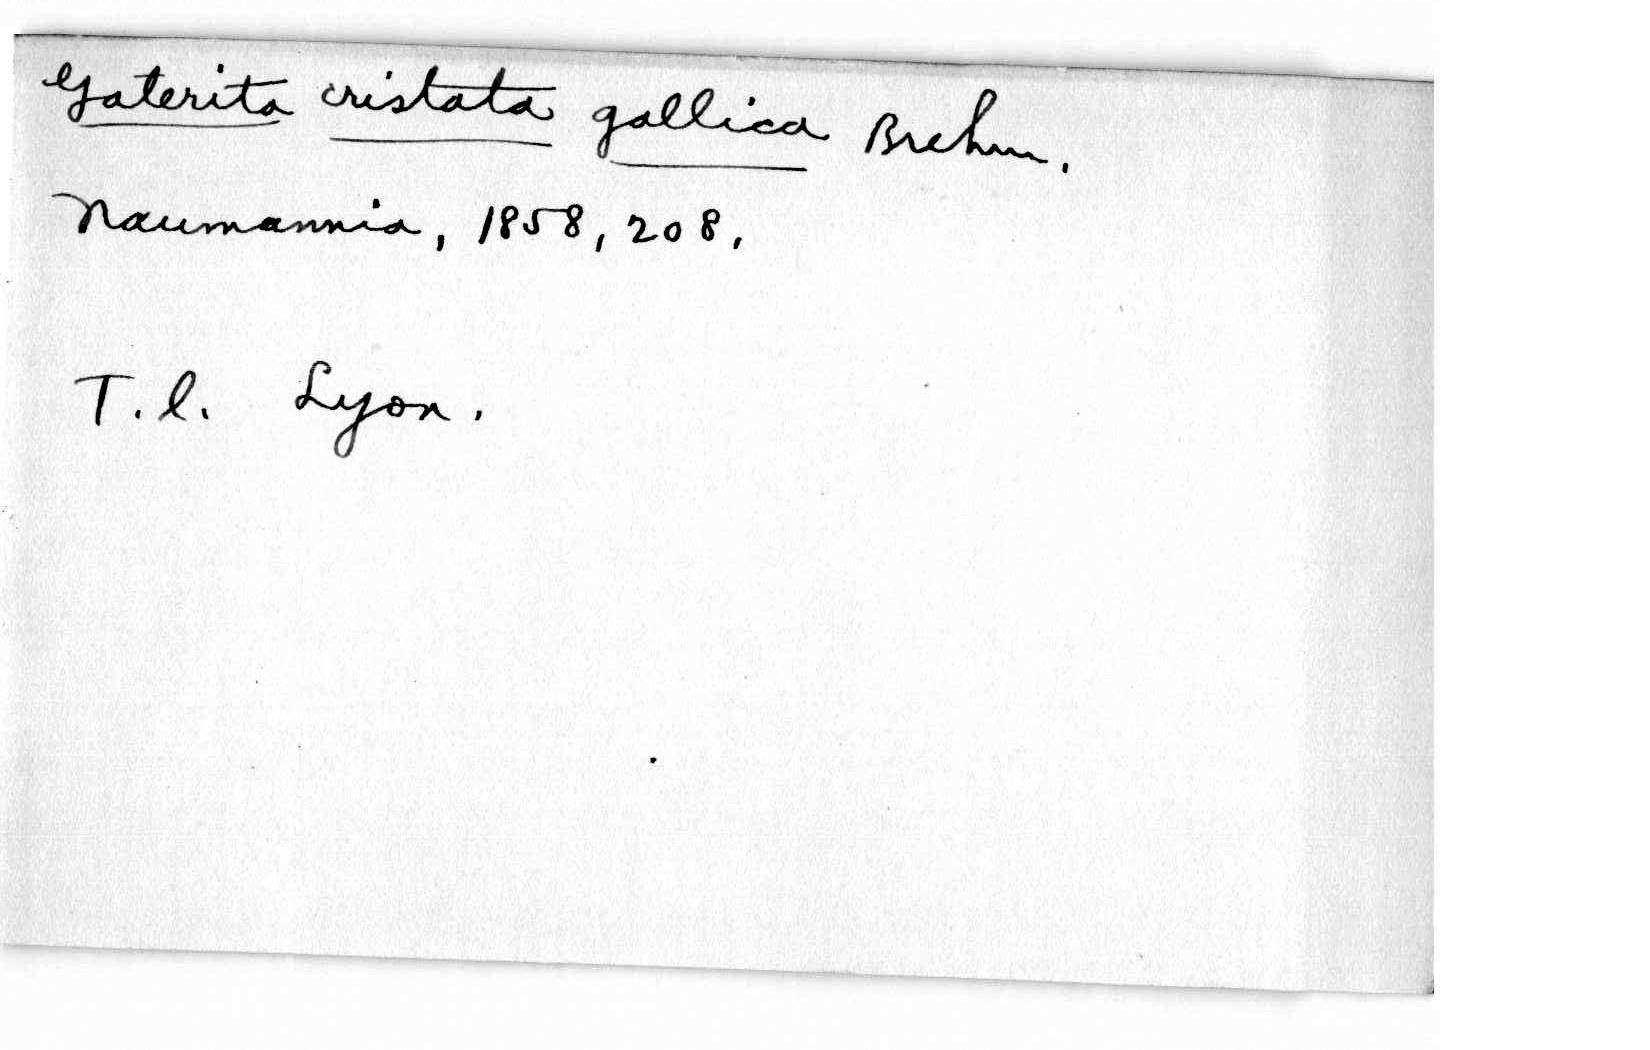 Galerita cristata gallica Brehm.
Naumannia, 1858, 208.
T.l. Lyon.